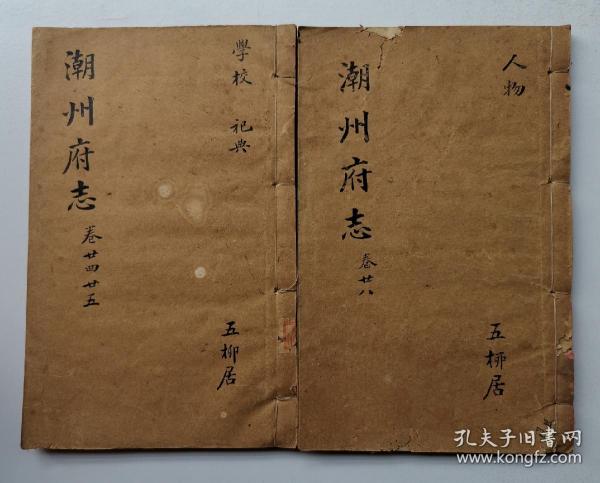 學校 祀典
潮州府志
卷廿四廿五
五柳居
人物
潮州府志
卷廿八
五柳居
孔夫子旧书网
www.kongfz.com